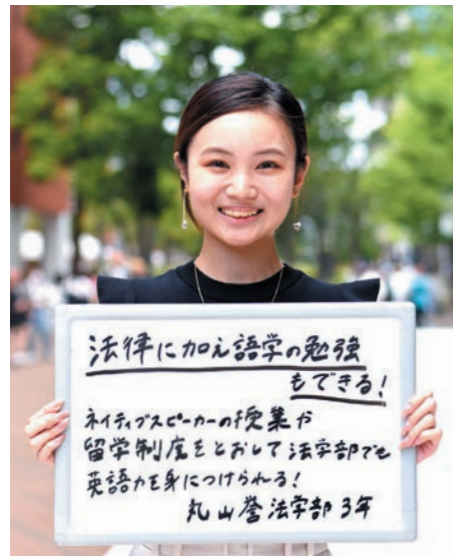 法律に加え語学の勉強
もできる!
ネイティブスピーカーの授業や
留学制度をとおして法学部でも
英語力を身につけられる!
丸山誉 法学部 3年